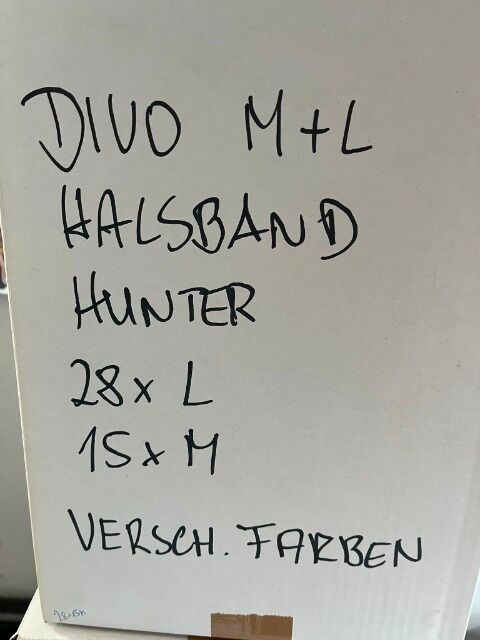 DIVO M+L
HALSBAND
HUNTER
28x L
15x M
VERSCH. FARBEN